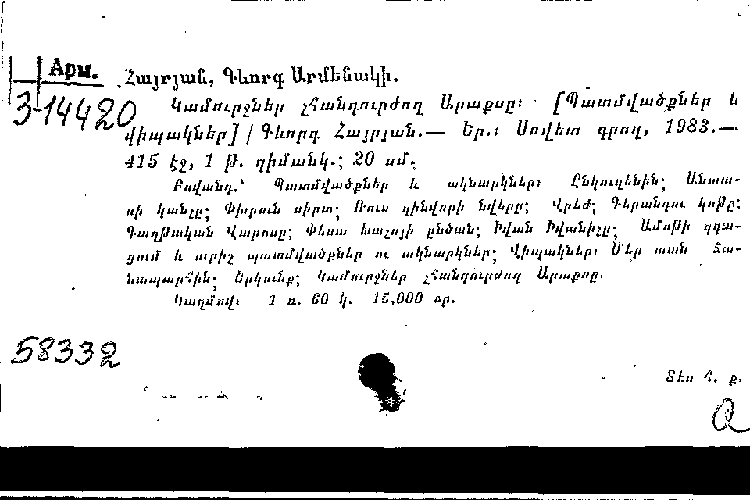 Арм.
Հայրյան, Գևորգ Արմենակի.
3-14420
Կամուրջներ չհանդուրժող Արաքսը: [Պատմվածքներ և
վիպակներ] / Գևորգ Հայրյան.— Եր.: Սովետ. գրող, 1983.—
415 էջ, 1 թ. դիմանկ.; 20 սմ.
Բովանդ.՝ Պատմվածքներ և ակնարկներ: Ընկուզենին; Անտա-
ռի կանչը; Փխրուն սիրտ; Ռուս զինվորի նվերը; Վրեժ; Գերանդու կոթը;
Գաղթական Վարոսը; Փեսա Խաչոյի ընծան; Իվան Իվանիչը; Ամոթի զգա-
ցում և ուրիշ պատմվածքներ ու ակնարկներ; Վիպակներ: Մեր տան ճա-
նապարհին; Երկունք; Կամուրջներ չհանդուրժող Արաքսը.
Կազմով: 1 ռ. 60 կ. 15,000 օր.
58332
Տես Հ. ք.